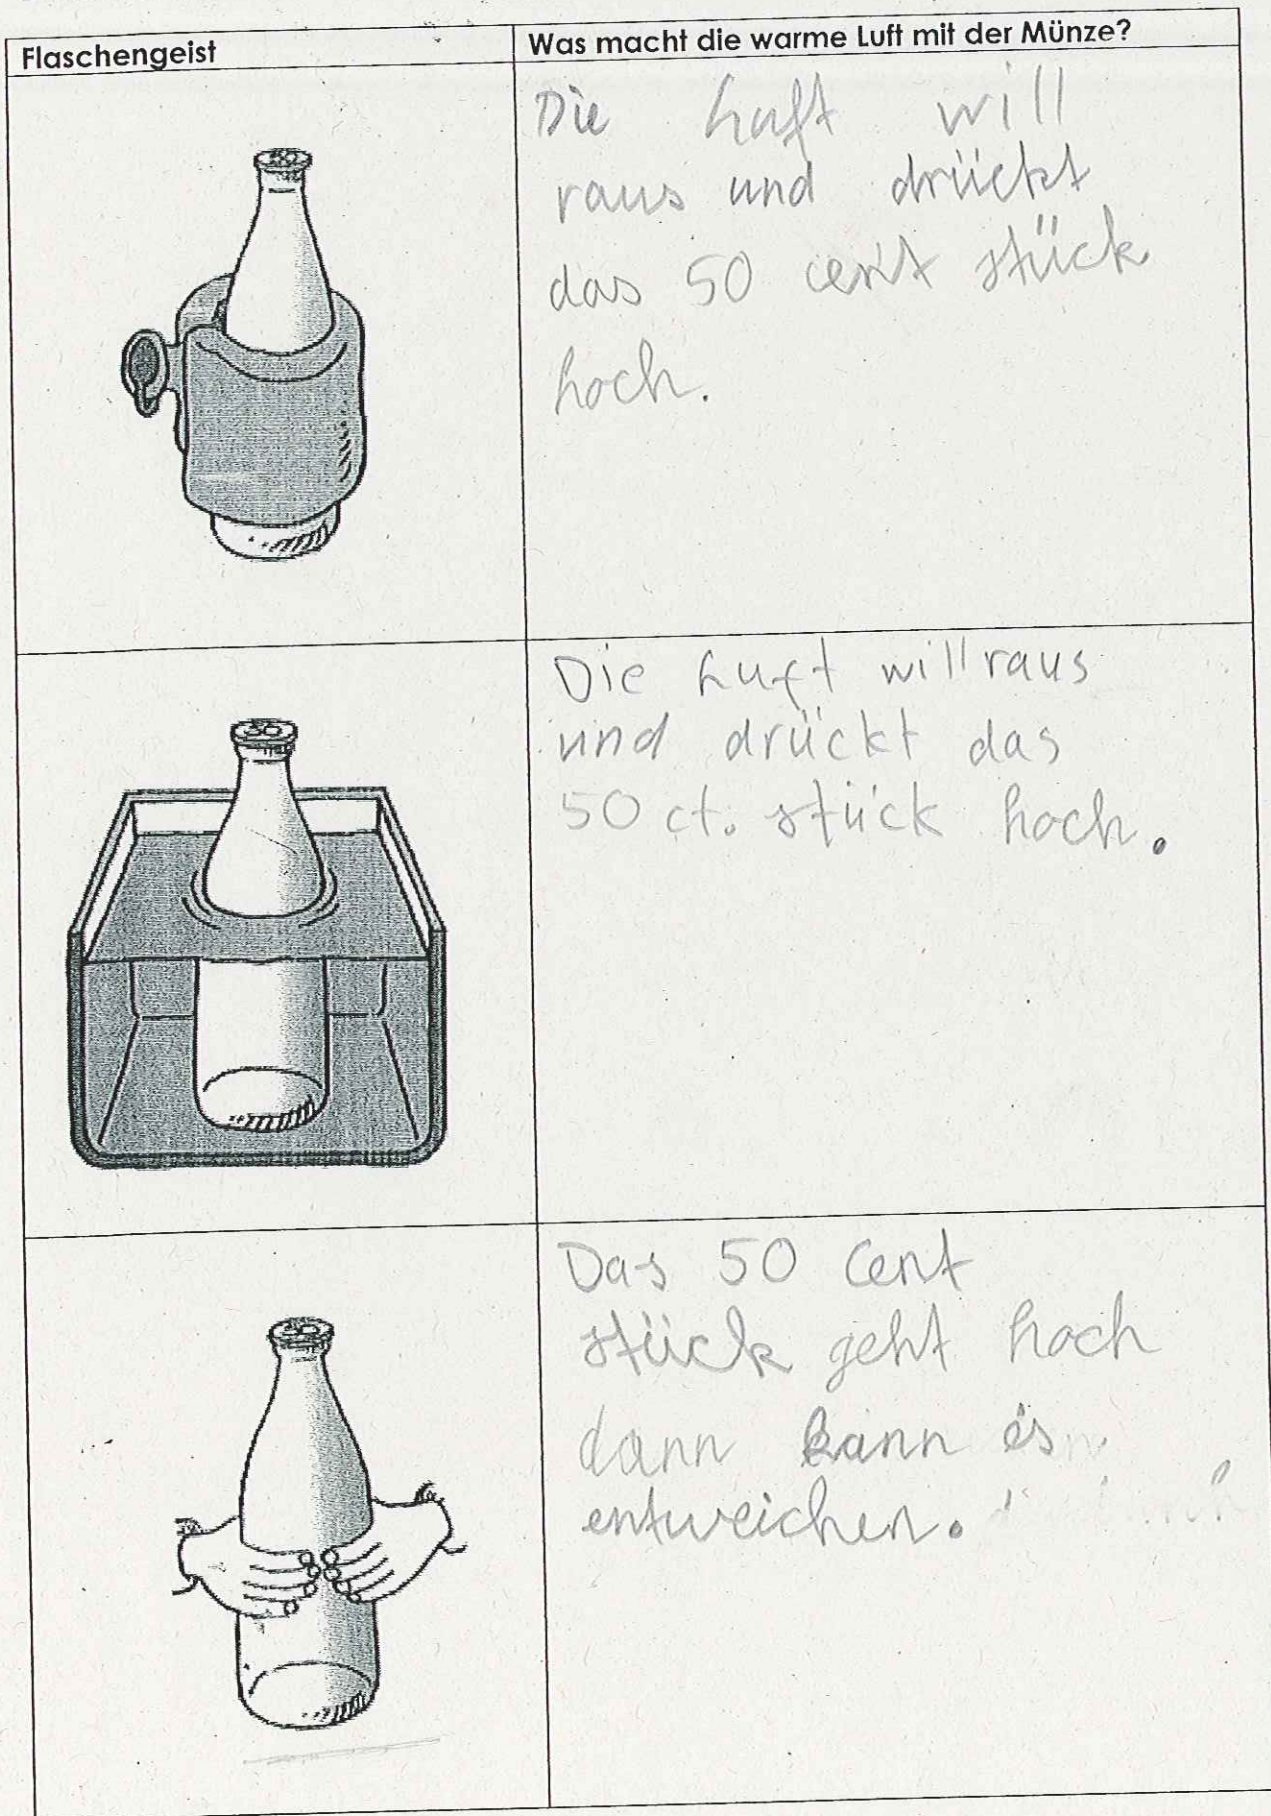 Flaschengeist
Was macht die warme Luft mit der Münze?
50
Die Luft will
raus und drückt
das 50 cent stück
hoch.
50
Die Luft will raus
und drückt das
50 ct. stück hoch.
50
Das 50 Cent
stück geht hoch
dann kann es
entweichen.